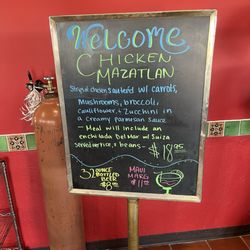 Welcome
Chicken
Mazatlan
Strips of chicken Sauteed w/ carrots,
Mushrooms, broccoli,
Cauliflower, & Zucchini in
a Creamy parmesan Sauce
- Meal will include an
enchilada Del Mar w/ Suiza
Served w/rice, & beans - $18.95
32 ounce
bottled
beer
$8
Maui
Marg
$11